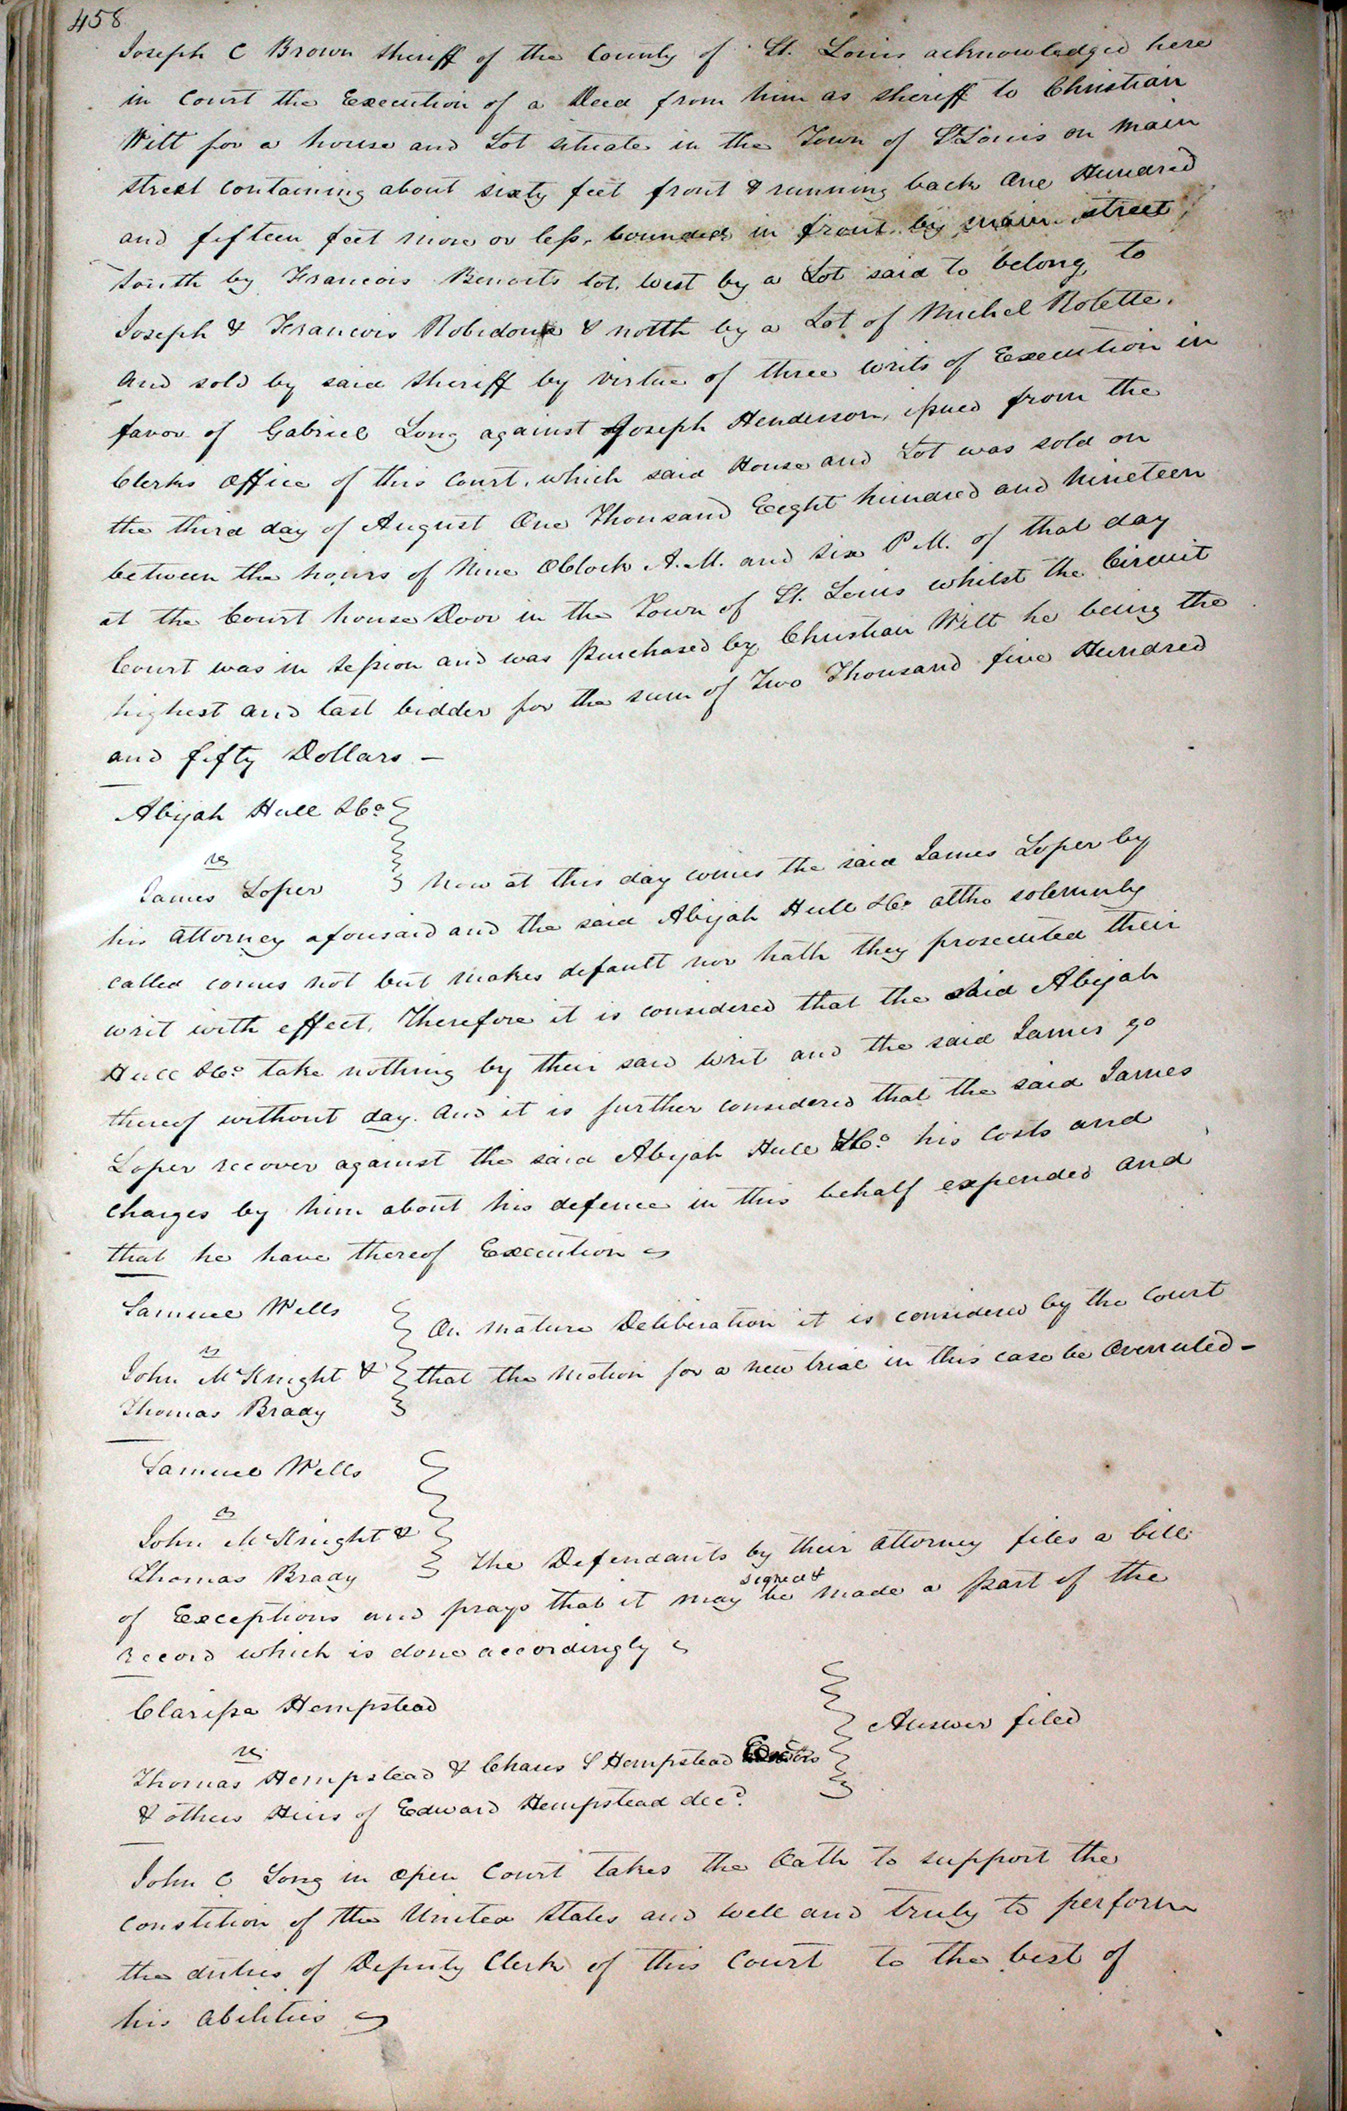 458
Joseph C Brown Sheriff of the County of St. Louis acknowledged here
in Court the Execution of a Deed from him as Sheriff to Christian
Wilt for a house and Lot situate in the Town of St Louis on Main
street containing about sixty feet front & running back one Hundred
and fifteen feet more or less, bounded in front by main street,
South by Francois Benoits lot. West by a Lot said to belong to
Joseph & Francois Robidoux & North by a Lot of Michel Rolette.
and sold by said Sheriff by virtue of three writs of Execution in
favor of Gabriel Long against Joseph Henderson, issued from the
Clerks office of this Court, which said House and Lot was sold on
the third day of August One Thousand Eight hundred and Nineteen
between the hours of Nine OClock A.M. and six P.M. of that day
at the Court house Door in the Town of St. Louis whilst the Circuit
Court was in session and was purchased by Christian Wilt he being the
highest and last bidder for the sum of Two Thousand five Hundred
and fifty Dollars —
Abijah Hull &Co
vs
James Loper
Now at this day comes the said James Loper by
his attorney aforesaid and the said Abijah Hull &Co altho solemnly
called comes not but makes default nor hath they prosecuted their
writ with effect. Therefore it is considered that the said Abijah
Hull &Co. take nothing by their said writ and the said James go
thereof without day. And it is further considered that the said James
Loper recover against the said Abijah Hull &Co. his costs and
charges by him about his defence in this behalf expended and
that he have thereof Execution
Samuel Wells
vs
John McKnight &
Thomas Brady
On mature Deliberation it is considered by the Court
that the Motion for a new trial in this case be Overruled —
Samuel Wells
vs
John McKnight &
Thomas Brady
The Defendants by their attorney files a bill
signed &
of Exceptions and prays that it may be made a part of the
record which is done accordingly
Clarissa Hempstead
vs
Thomas Hempstead & Charles S Hempstead
& others Heirs of Edward Hempstead decd.
Answer filed
John C Long in open Court takes the Oath to support the
constition of the United States and well and truly to perform
the duties of Deputy Clerk of this Court to the best of
his abilities